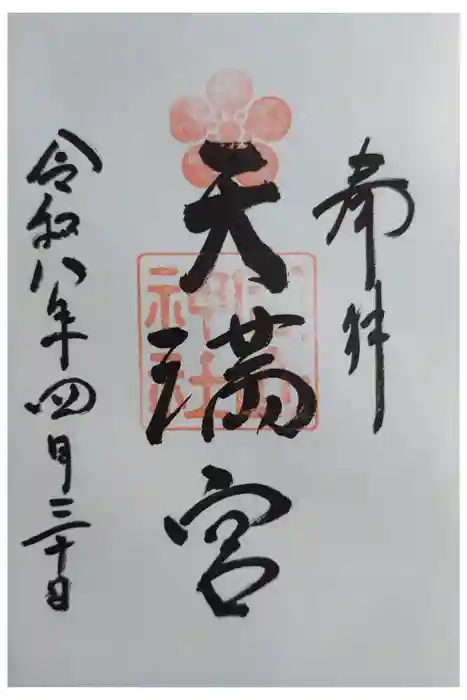 奉拝
天満宮
神社
令和八年四月三十日